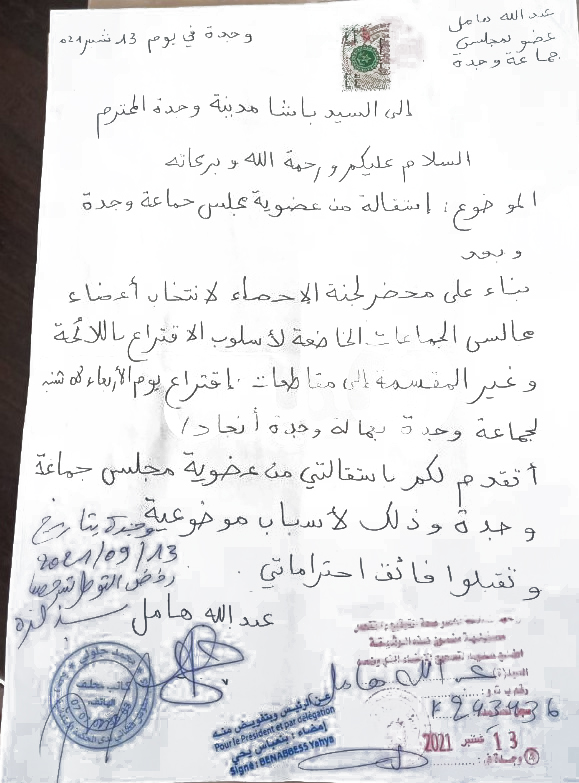 عبد الله هامل
عضو مجلس
جماعة وجدة
وجدة في يوم 13 شتنبر 2021
إلى السيد باشا مدينة وجدة المحترم
السلام عليكم ورحمة الله وبركاته
الموضوع: استقالة من عضوية مجلس جماعة وجدة
و بعد
بناء على محضر لجنة الإحصاء لانتخاب أعضاء
مجالس الجماعات الخاضعة لأسلوب الاقتراع باللائحة
وغير المقسمة إلى مقاطعات، إقتراع يوم الأربعاء 08 شتنبر
لجماعة وجدة بعمالة وجدة أنجاد/
أتقدم لكم باستقالتي من عضوية مجلس جماعة
وجدة وذلك لأسباب موضوعية
وتقبلوا فائق احتراماتي.
عبد الله هامل
وجدة بتاريخ
2021/09/13
رفض التوصل
عبد الله هامل
F 243436
عن الرئيس وبتفويض منه
Pour le Président et par délégation
إمضاء: بنعباس يحي
Signé: BENABBESS Yahya
13 شتنبر 2021
وجدة